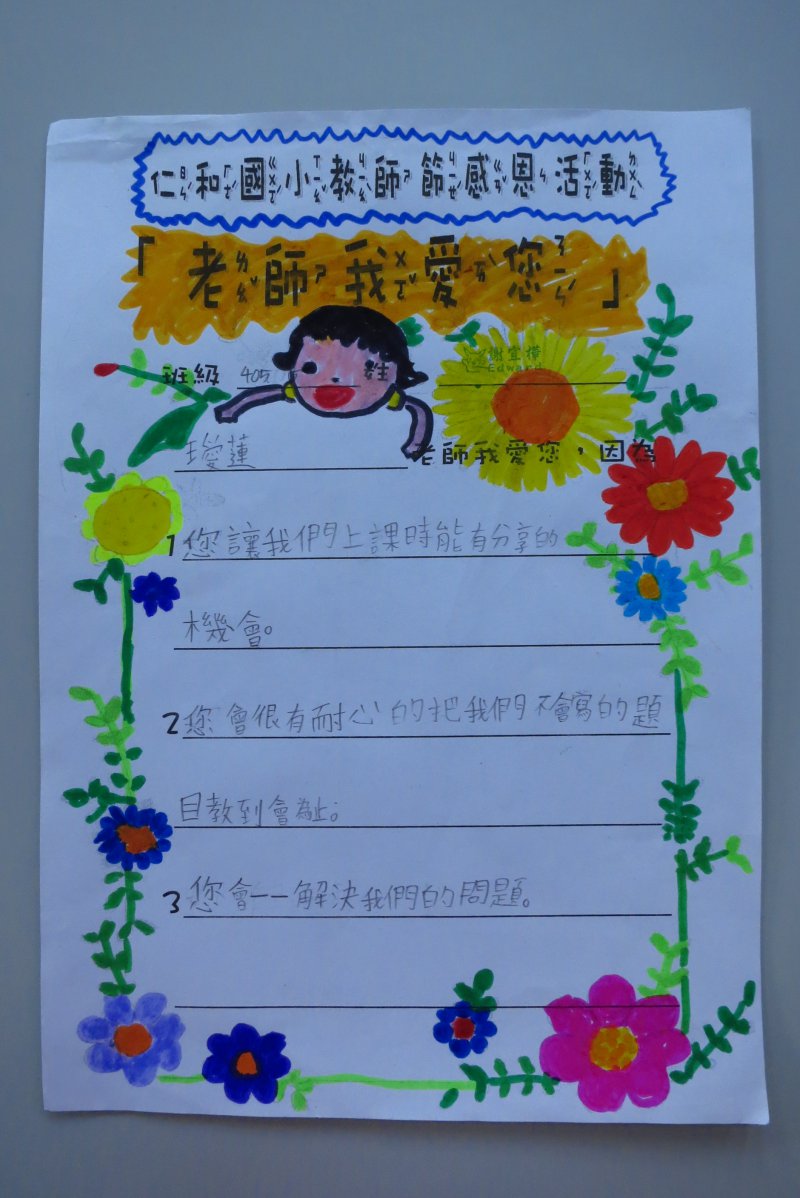 仁和國小教師節感恩活動
「老師我愛您」
班級 405 姓 謝宜樺
Edward
璦蓮 老師我愛您，因為
1 您讓我們上課時能有分享的
機會。
2 您會很有耐心的把我們不會寫的題
目教到會為止。
3 您會一一解決我們的問題。